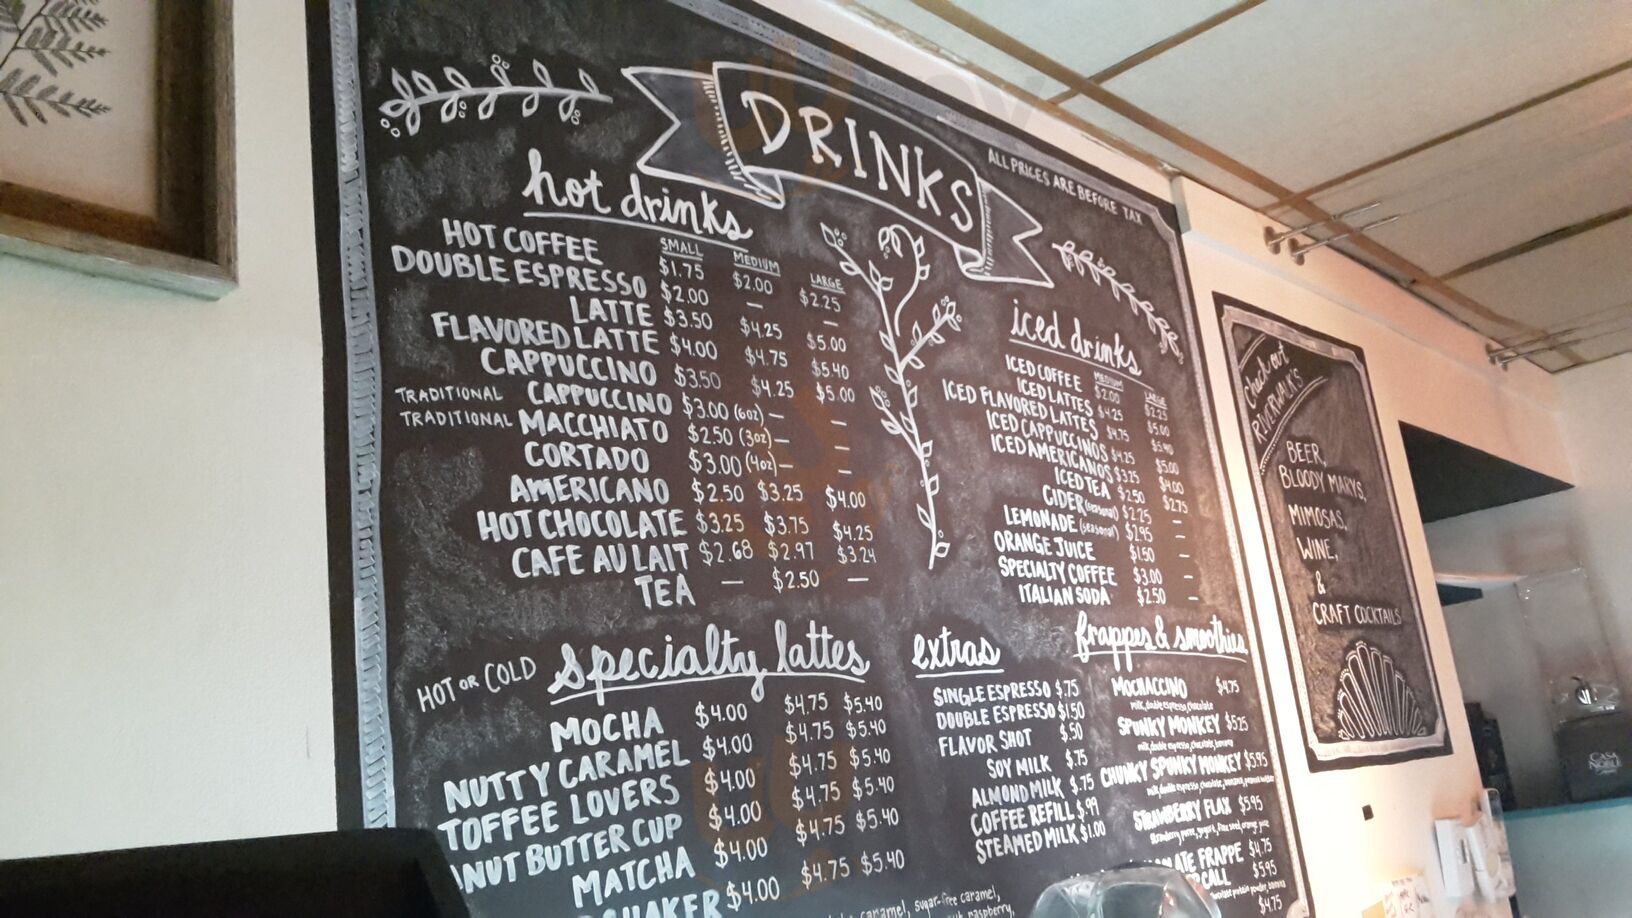 DRINKS
ALL PRICES ARE BEFORE TAX
hot drinks
SMALL MEDIUM LARGE
HOT COFFEE $1.75 $2.00 $2.25
DOUBLE ESPRESSO $2.00 — —
LATTE $3.50 $4.25 $5.00
FLAVORED LATTE $4.00 $4.75 $5.40
CAPPUCCINO $3.50 $4.25 $5.00
TRADITIONAL CAPPUCCINO $3.00 (6oz) — —
TRADITIONAL MACCHIATO $2.50 (3oz) — —
CORTADO $3.00 (4oz) — —
AMERICANO $2.50 $3.25 $4.00
HOT CHOCOLATE $3.25 $3.75 $4.25
CAFE AU LAIT $2.68 $2.97 $3.24
TEA — $2.50 —
iced drinks
MEDIUM LARGE
ICED COFFEE $2.00 $2.25
ICED LATTES $4.25 $5.00
ICED FLAVORED LATTES $4.75 $5.40
ICED CAPPUCCINOS $4.25 $5.00
ICED AMERICANOS $3.25 $4.00
ICED TEA $2.50 $2.75
CIDER (seasonal) $2.25 —
LEMONADE (seasonal) $2.95 —
ORANGE JUICE $1.50 —
SPECIALTY COFFEE $3.00 —
ITALIAN SODA $2.50 —
HOT OR COLD specialty lattes
MOCHA $4.00 $4.75 $5.40
NUTTY CARAMEL $4.00 $4.75 $5.40
TOFFEE LOVERS $4.00 $4.75 $5.40
ANUT BUTTER CUP $4.00 $4.75 $5.40
MATCHA $4.00 $4.75 $5.40
$4.00 $4.75 $5.40
caramel, sugar-free caramel,
raspberry,
extras
SINGLE ESPRESSO $.75
DOUBLE ESPRESSO $1.50
FLAVOR SHOT $.50
SOY MILK $.75
ALMOND MILK $.75
COFFEE REFILL $.99
STEAMED MILK $1.00
frappes & smoothies
MOCHACCINO $4.75
milk, double espresso, chocolate
SPUNKY MONKEY $5.25
milk, double espresso, chocolate, banana
CHUNKY SPUNKY MONKEY $5.95
milk, double espresso, chocolate, banana, peanut butter
STRAWBERRY FLAX $5.95
strawberry puree, yogurt, flax seed, orange juice
LATE FRAPPE $4.75
CALL $5.95
chocolate protein powder, banana
$4.75
Check out
RIVERWALK'S
BEER,
BLOODY MARYS,
MIMOSAS,
WINE,
&
CRAFT COCKTAILS
CASA
NOBLE